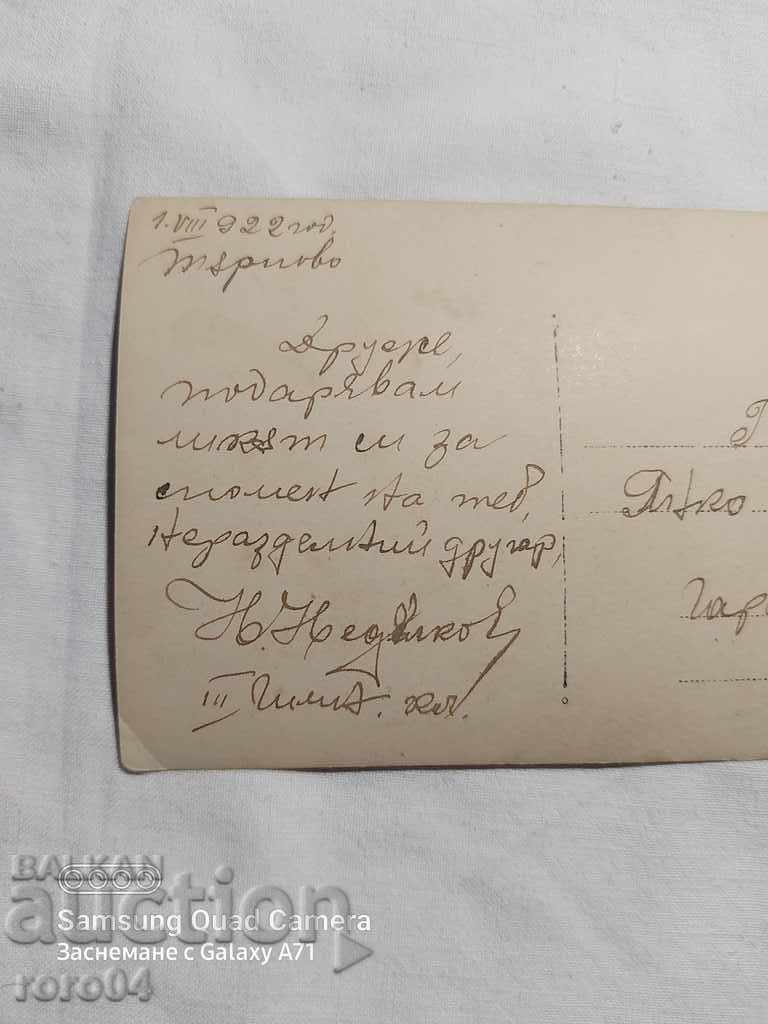 1.VIII 922 год.
Търново
Друже,
подарявам
ликът си за
спомен на теб,
Неразделний другар,
Н. Недялков
III Гимн. кл.
Г
Пѣко
Гар
BALKAN
auction
roro04
Samsung Quad Camera
Заснемане с Galaxy A71